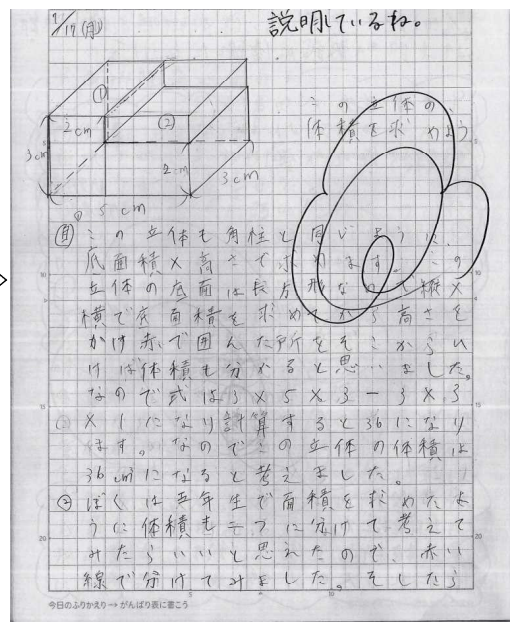 7/17(月)
説明しているね。
①
2cm
②
3cm
2cm
3cm
5cm
この立体の
体積を求めよう
自 この立体も角柱と同じように、
底面積×高さで求めます。この
立体の底面は長方形なので縦×
横で底面積を求めてから高さを
かけ赤で囲んだ所をそこからひ
けば体積も分かると思いました。
なので式は3×5×3-3×3
×1になり計算すると36になり
ます。なのでこの立体の体積は
36cm³になると考えました。
② ぼくは五年生で面積を求めたよ
うに体積も二つに分けて考えて
みたらいいと思えたので、赤い
線で分けてみました。そしたら
今日のふりかえり→がんばり表に書こう